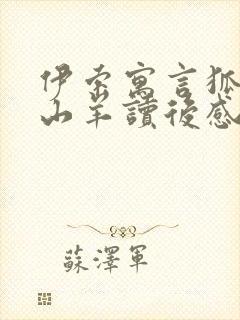 伊索寓言狐
山羊讀後感
蘇澤軍